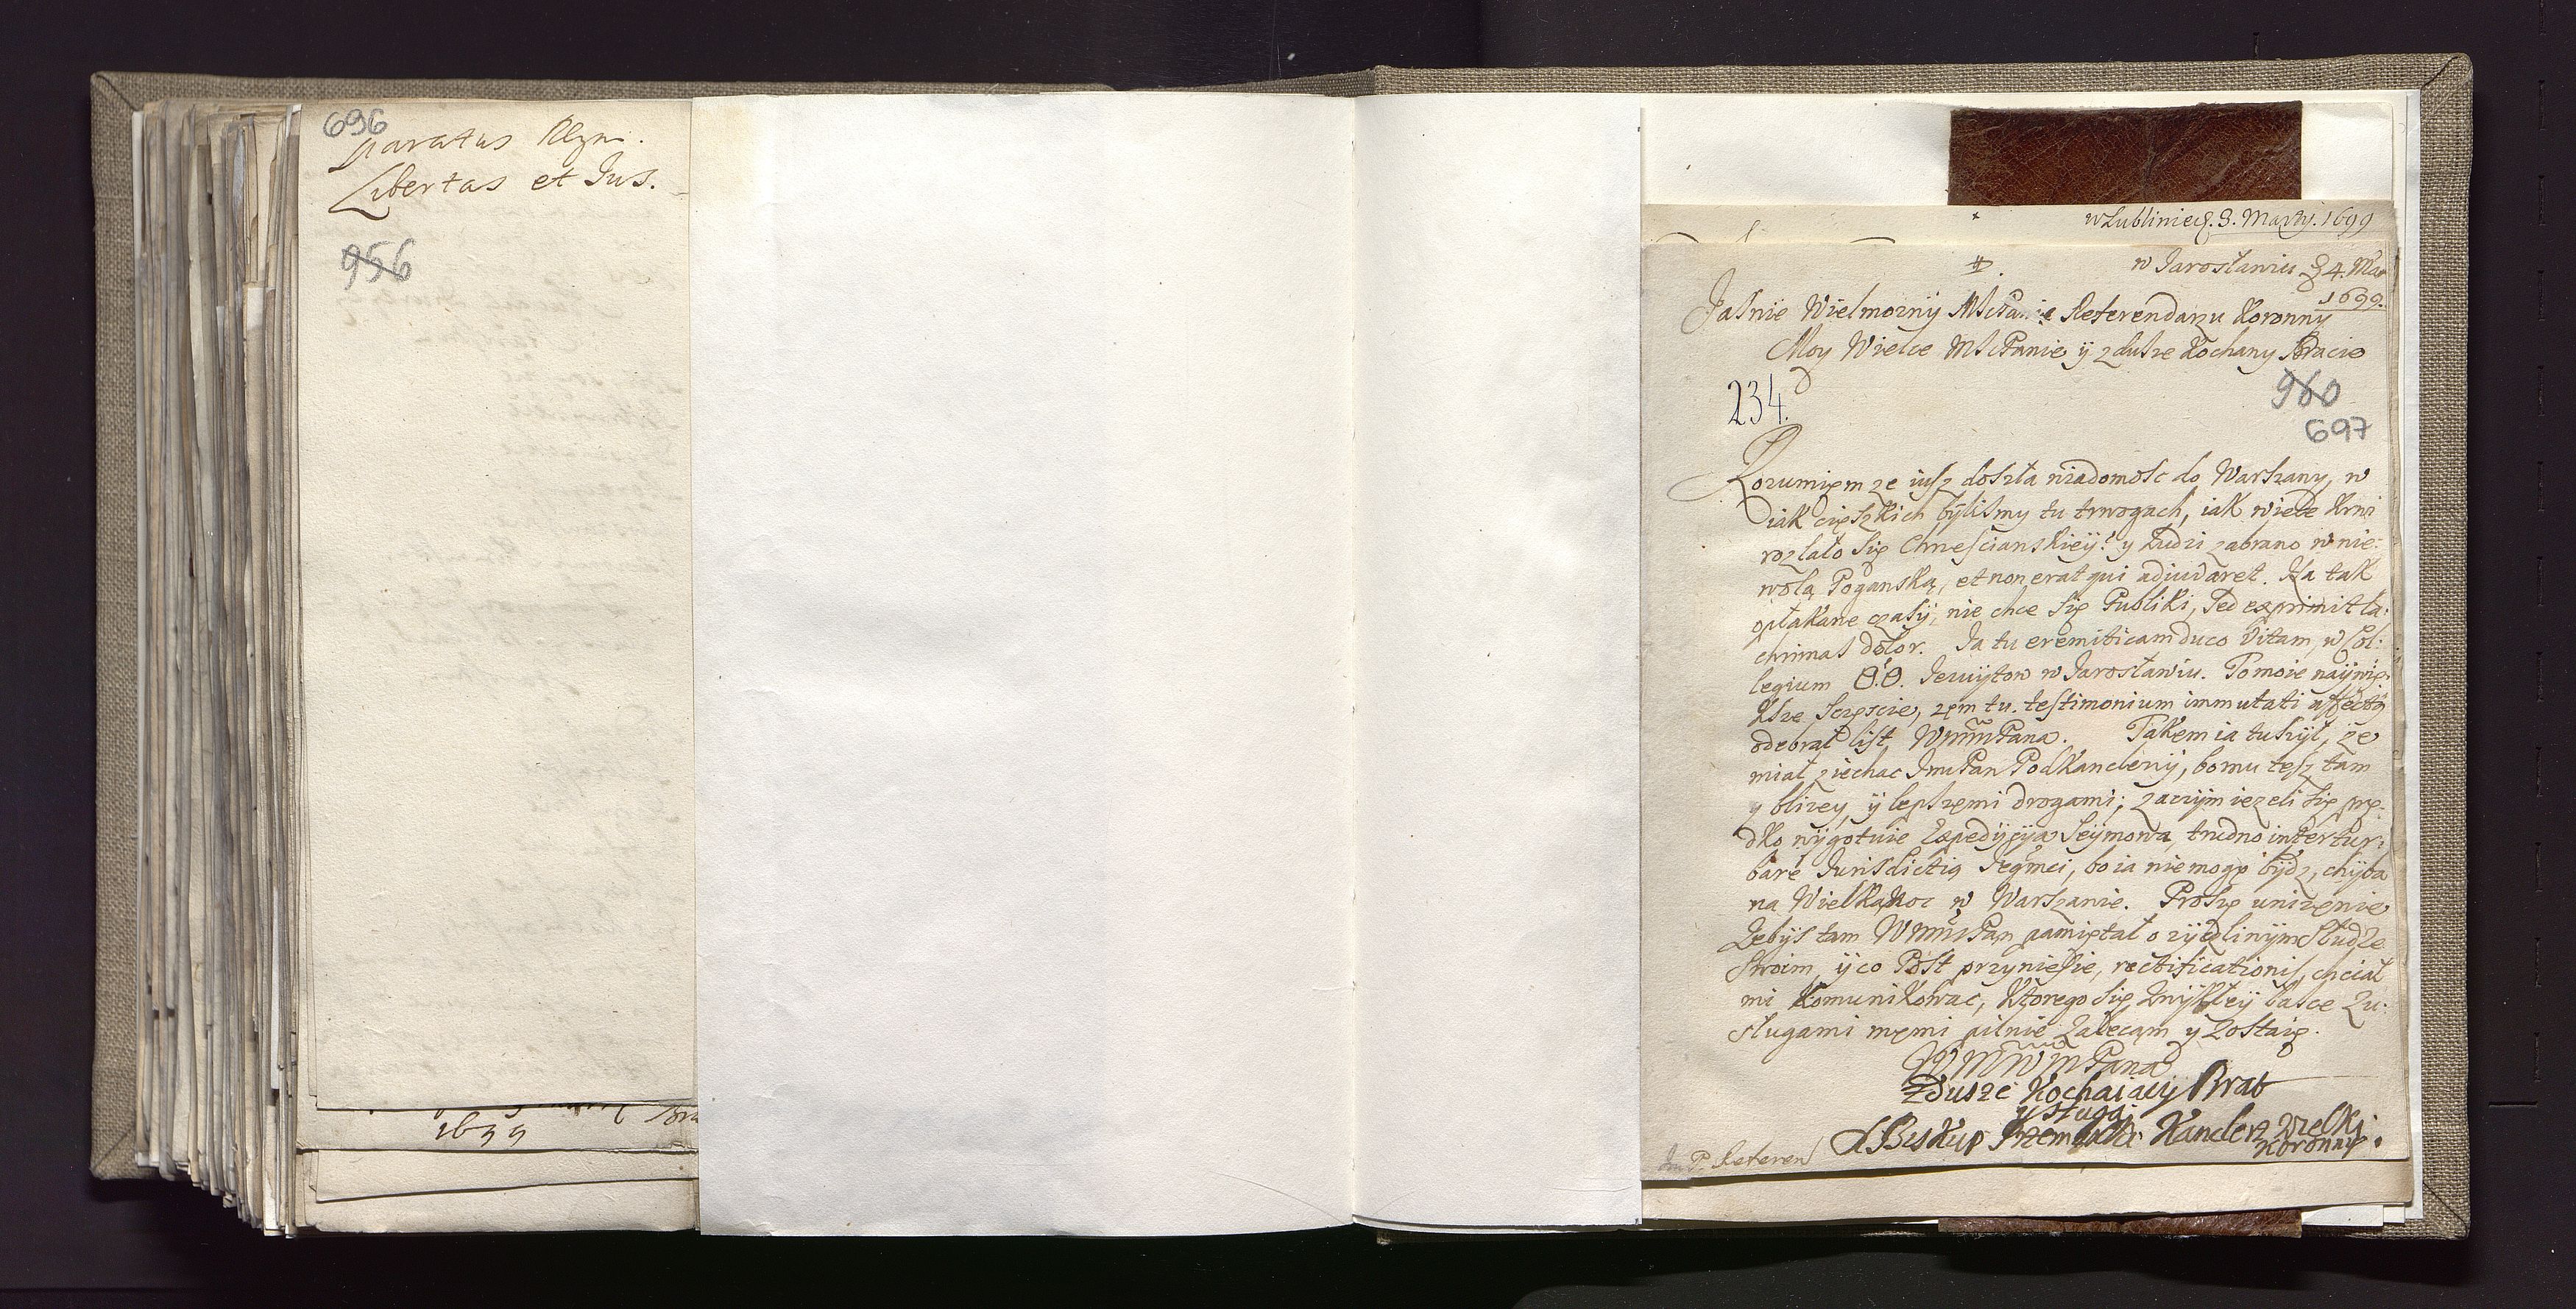 696
paratus Regni.
Libertas et Ius.
956
1699
w Lublinie d. 3. Marty. 1699
w Jarosławiu d 4. Mar
1699.
Jaśnie Wielmożny MśćPanie Referendarzu Koronny
Moy Wielce MśćPanie ÿ z dusze Kochany Bracie
234.
960
697
Rozumięm ze iusz doszła wiadomosc do Warszawy, w
iak cięszkich bylismy tu trwogach, iak wiele Krwi
rozlało się Chrzescianskieÿ! y Ludzi zabrano w nie:
wolą Poganską, et non erat qui adiuvaret. Na tak
opłakane czasÿ, nie chce się Publiki, sed exprimit la:
chrimas dolor. Ja tu eremiticam duco vitam, w Col:
legium O.O. Jezuÿtow w Jarosławiu. To moie naÿwię:
Ksze sczęscie, zem tu testimonium immutati affectus
odebrał list WmmPana. Takem ia tuszÿł, ze
miał ziechac JmPan PodKanclerzÿ, bo mu tesz tam
y blizey, ÿ lepszemi drogami; zaczÿm iezeli się prę:
dko wÿgotuie Expedÿcÿia Seÿmowa, trudno intertur:
bare Jurisdictią Jegmci, bo ia nie mogę bÿdz, chÿba
na WielKąNoc w Warszawie. Proszę unizenie
Zebÿs tam WmmPan pamiętał o zÿczliwÿm Słudze
swoim, ÿ co Post przyniesie, rectificationis, chciał
mi Komunikowac, Ktorego się zwÿKłeÿ łasce Zu:
sługami męmi pilnie Zalecąm y Zostaię.
WMMWMPana
Zdusze Kochaiący Brat
y sługa
XBiskup Przemyski Kanclerz Wielki
Koronny.
Jm P. Referen